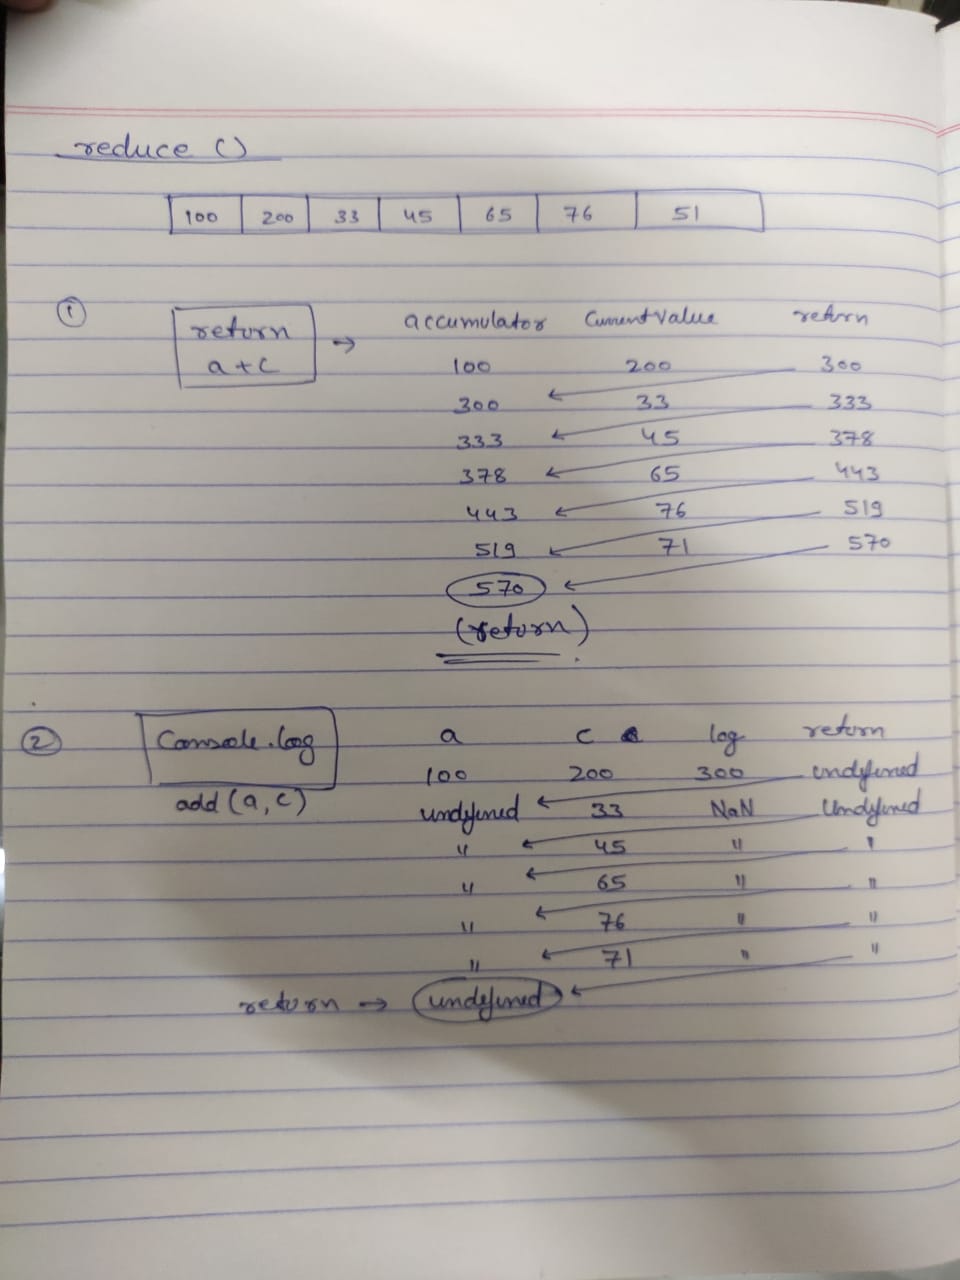 reduce ()
100 200 33 45 65 76 51
① return accumulator CurrentValue return
a + c → 100 200 300
300 33 333
333 45 378
378 65 443
443 76 519
519 71 570
570
(return)
② Console.log a c log return
100 200 300 undefined
add (a, c) undefined 33 NaN Undefined
" 45 " "
" 65 " "
" 76 " "
" 71 " "
return → undefined